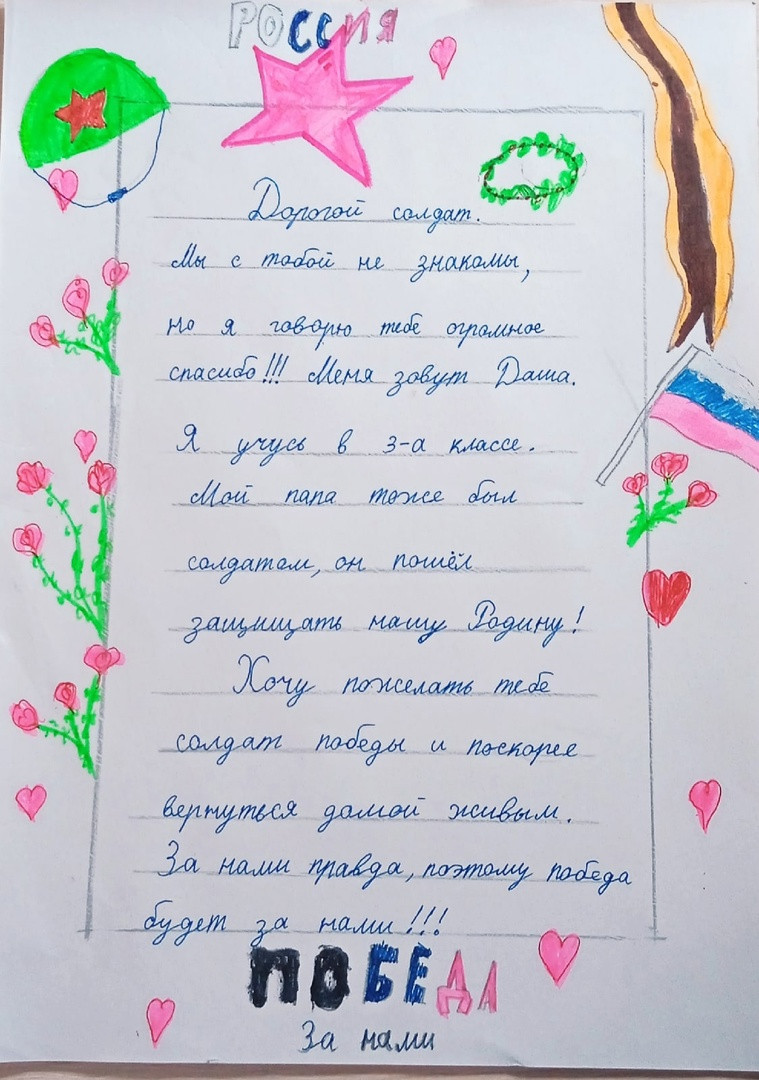 РОССИЯ
Дорогой солдат.
Мы с тобой не знакомы,
но я говорю тебе огромное
спасибо!!! Меня зовут Даша.
Я учусь в 3-а классе.
Мой папа тоже был
солдатом, он пошёл
защищать нашу Родину!
Хочу пожелать тебе
солдат победы и поскорее
вернуться домой живым.
За нами правда, поэтому победа
будет за нами!!!
ПОБЕДА
За нами